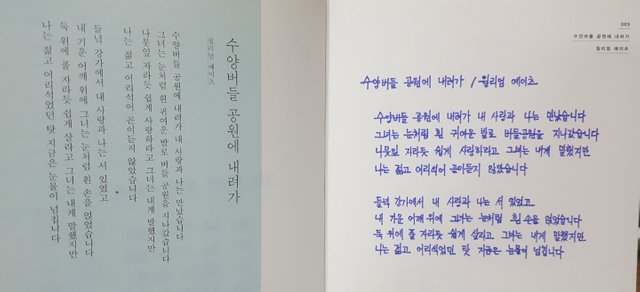 수양버들 공원에 내려가
윌리엄 예이츠
수양버들 공원에 내려가 내 사랑과 나는 만났습니다
그녀는 눈처럼 흰 귀여운 발로 버들 공원을 지나갔습니다
나뭇잎 자라듯 쉽게 사랑하라고 그녀는 내게 말했지만
나는 젊고 어리석어 곧이듣지 않았습니다
들녘 강가에서 내 사랑과 나는 서 있었고
내 기운 어깨 위에 그녀는 눈처럼 흰 손을 얹었습니다
둑 위에 풀 자라듯 쉽게 살라고 그녀는 내게 말했지만
나는 젊고 어리석었던 탓 지금은 눈물이 넘칩니다
수양버들 공원에 내려가
윌리엄 예이츠
수양버들 공원에 내려가 / 윌리엄 예이츠
수양버들 공원에 내려가 내 사랑과 나는 만났습니다
그녀는 눈처럼 흰 귀여운 발로 버들공원을 지나갔습니다
나뭇잎 자라듯 쉽게 사랑하라고 그녀는 내게 말했지만
나는 젊고 어리석어 곧이듣지 않았습니다
들녘 강가에서 내 사랑과 나는 서 있었고
내 기운 어깨 위에 그녀는 눈처럼 흰 손을 얹었습니다
둑 위에 풀 자라듯 쉽게 살라고 그녀는 내게 말했지만
나는 젊고 어리석었던 탓 지금은 눈물이 넘칩니다